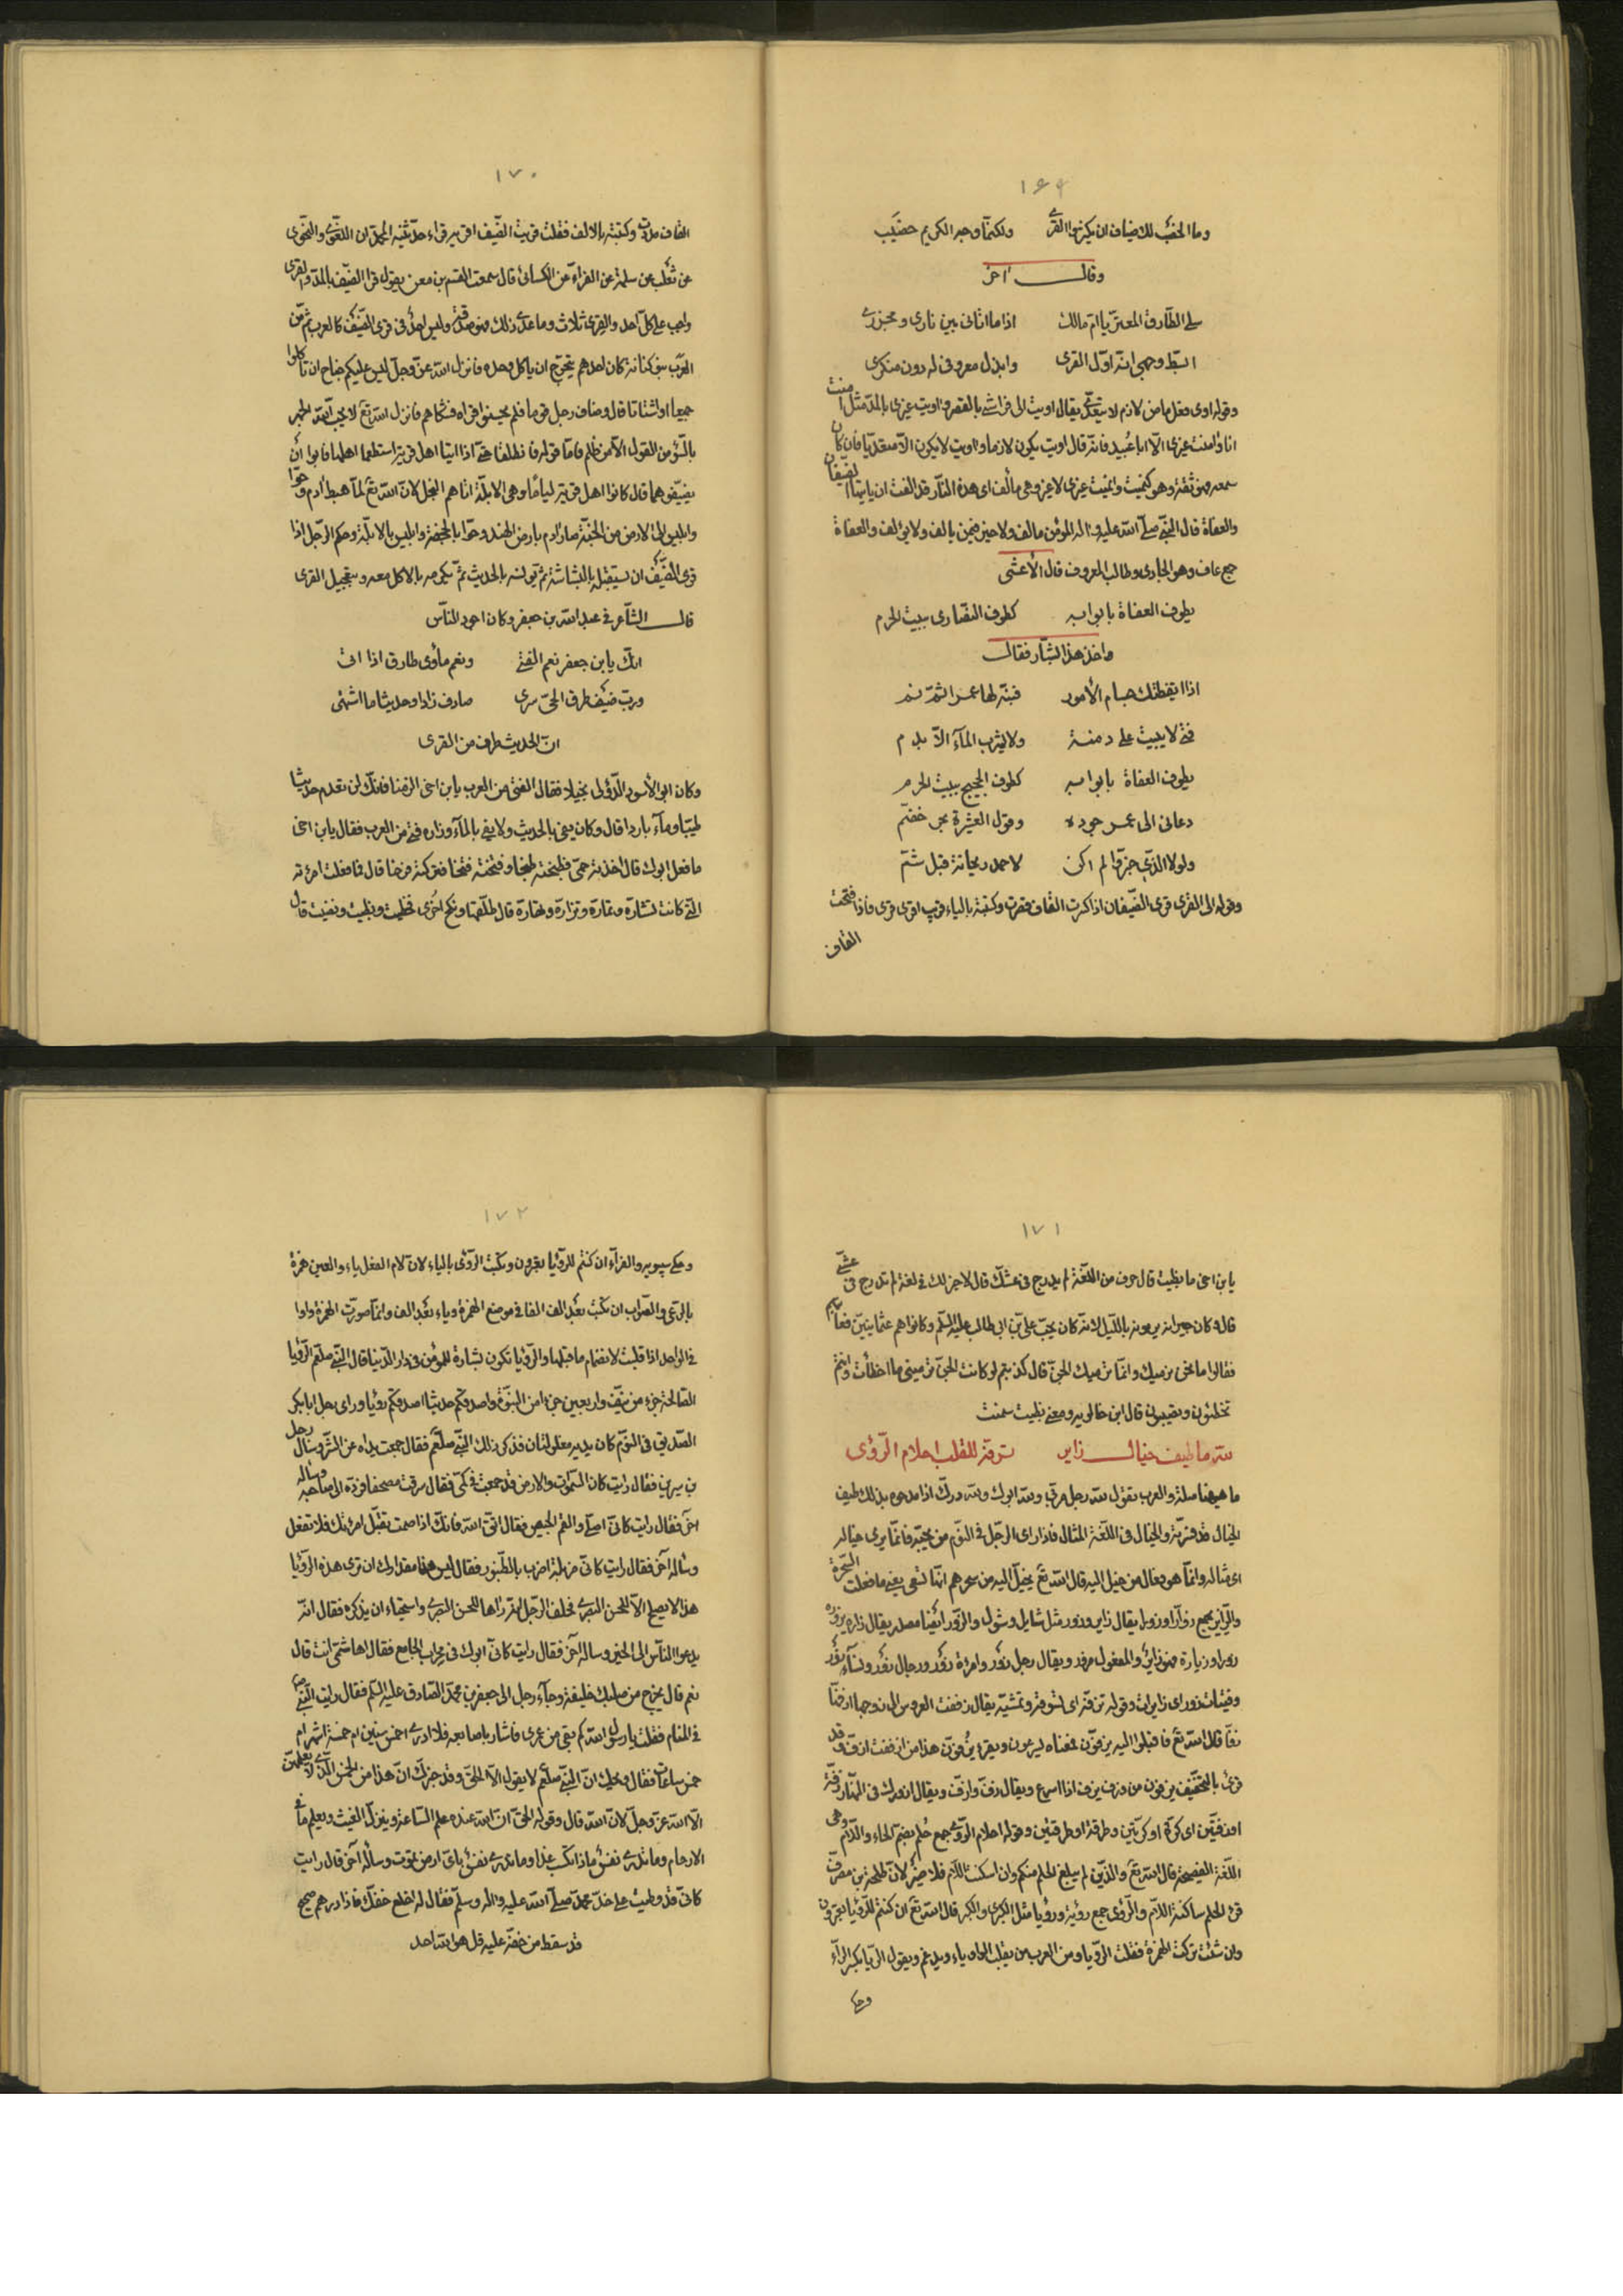 ١٦٩
وما الخصب للاضياف ان يكثر القرى ولكنما وجه الكريم خصيب
وقال آخر
سلي الطارق المعتر يا ام مالك اذا ما اتاني بين ناري ومجزري
ايسفر وجهي انه اول القرى وابذل معروفي له دون منكري
وقوله اوى فعل ماض لازم لا يتعدى يقال اويت الى فراشي بالقصر واويت غيري بالمد مثل امنت
انا وامنت غيري الا ابا عبيد فانه قال اويت يكون لازما واويت لا يكون الا متعديا فان كان
سمعه فهو ثقة وهو كنميت وانميت غيري لا غير وهي مألف اي هذه النار قد الفت ان يأتيها الضيفان
والعفاة قال النبي صلى الله عليه واله المؤمن مالف ولا خير فيمن لا يالف ولا يؤلف والعفاة
جمع عاف وهو الجادى وطالب المعروف قال الأعشى
يطوف العفاة بابوابه كطوف النصارى ببيت الحرم
واخذ هذا بشار فقال
اذا ايقظتك جسام الأمور فنبه لها عمرا ثم نم
فتى لا يبيت على دمنة ولا يشرب الماء الا بدم
يطوف العفاة بابوابه كطوف الحجيج ببيت الحرم
دعاني الى عمر جوده وقول العشيرة بحر خضم
ولولا الذي خبروا لم اكن لاحمد ريحانة قبل شم
وقوله الى القرى قرى الضيفان اذا كسرت القاف قصرت وكتبته بالياء قريت اقرى قرى واذا فتحت
القاف
١٧٠
القاف مددت وكتبته بالالف فقلت قريت الضيف اقريه قراء حدثنيه المجدان اللغوى والنحوى
عن ثعلب عن سلمة عن الفراء عن الكسائى قال سمعت القسم بن معن يقول قرا الضيف بالمد والقرى
واجب على كل احد والقرى ثلاث وما عدى ذلك فهو صدقة وليس احد في قرى الضيف كالعرب ثم من
العرب بنو كنانة كان احدهم يتحرج ان ياكل وحده فانزل الله عز وجل ليس عليكم جناح ان تاكلوا
جميعا او اشتاتا قال وضاف رجل قوما فلم يحسنوا قراه فشكاهم فانزل الله تع لا يحب الله الجهر
بالسوء من القول الا من ظلم فاما قوله فانطلقا حتى اذا اتيا اهل قرية استطعما اهلها فابوا ان
يضيفوهما قال كانوا اهل قرية لياما وهى الابلة اتاهم البخل لان الله تع لما اهبط ادم وحوا
وابليس الى الارض من الجنة صار ادم بارض الهند وحوا بالجدة وابليس بالابلة وحكم الرجل اذا
قرى الضيف ان يستقبله بالبشاشة ثم يؤنسه بالحديث ثم يكرمه بالاكل معه وبتعجيل القرى
قال الشاعر في عبد الله بن جعفر وكان اجود الناس
انك يا بن جعفر نعم الفتى ونعم مأوى طارق اذا اتى
ورب ضيف طرق الحى سرى صادف زادا وحديثا ما اشتهى
ان الحديث طرف من القرى
وكان ابو الأسود الدؤلى بخيلا فقال لفتى من العرب يا بن اخى الزمنا فانك لن تعدم حديثا
طيبا وماء باردا قال وكان يفى بالحديث ولا يفى بالماء وزاره فتى من العرب فقال يا بن اخى
ما فعل ابوك قال اخذته حمى فطبخته طبخا وفتخته فتخا فتركته فرخا قال فما فعلت امرءته
التى كانت تشاره وتماره وتزاره وتهاره قال طلقها ونكح اخرى فحظيت وبظيت ورضيت قال
١٧١
يا بن اخى ما بظيت قال حرف من اللغة لم يدرج في عشك قال لا خير لك في لغة لم تدرج في عشى
قال وكان جيرانه يرمونه بالليل لانه كان يحب على بن ابى طالب عليه السلم وكانوا هم عثمانيين فعاتبهم
فقالوا ما نحن نرميك وانما ترميك الجن قال كذبتم لو كانت الجن ترمينى ما اخطأت وانتم
تخطئون وتصيبون قال ابن خالويه ومعنى بظيت سمنت
لله ما طيف خيال زاير تزفه للقلب احلام الرؤى
ما ههنا صلة والعرب تقول لله رجل هرقى ولله ابوك ولله درك اذا مدحوه بذلك طيف
الخيال قد فسرته والخيال في اللغة المثال فاذا رأى الرجل في النوم من يحبه فانما يرى خياله
اى مثاله وانما هو فعال من خيل اليه قال الله تع يخيل اليه من سحرهم انها تسعى يعنى ما فعلت السحرة
والزاير يجمع زوارا وزورا يقال زاير وزور مثل شايل وشول والزور ايضا مصدر يقال زاره يزوره
زورا وزيارة فهو زائر والمفعول مزور ويقال رجل زور وامرءة زور ورجال زور ونساء زور
وفتيات زور اى زايرات وقوله تزفه اى تسوقه وتمشيه يقال زففت العروس الى زوجها ازفها
زفا قال الله تع فاقبلوا اليه يزفون فمعناه ليسرعون ويقرء يُزفون هذا من ازففت ازف وقد
قرئ بالتخفيف يزفون من وزف يزف اذا اسرع ويقال زف وازف ويقال ازورك في النهار زفة
او زفتين اى كرة او كرتين وطرقة او طرقتين وقوله احلام الرؤى جمع حُلُم بضم الحاء واللام وهى
اللغة الفصيحة قال الله تع والذين لم يبلغوا الحلم منكم وان اسكنت اللام فلا ضير لان طلحة بن مصرف
قرء الحلم ساكنة اللام والرؤى جمع رؤية ورؤيا مثل الكبرى والكبر قال الله تع ان كنتم للرؤيا تعبرون
وان شئت تركت الهمزة فقلت الرويا ومن العرب من يقلب الواو ياء ويدغم ويقول الريا بكسر الراء
وحكى
١٧٢
وحكى سيبويه والفراء ان كنتم للرؤيا تعبرون وتكتب الرؤى بالياء لان لام الفعل ياء والعين همزة
بالرعى والصواب ان تكتب بعد الف الفا في موضع الهمزة وياء بعد الف وانما صورت الهمزة واوا
في الواحد اذا قلبت لانضمام ما قبلها والرؤيا تكون بشارة للمؤمن في دار الدنيا قال النبى صلعم الرؤيا
الصالحة جزء من نيف واربعين جزءا من النبوة واصدقكم حديثا اصدقكم رؤيا وراى رجل ابا بكر
الصديق في النوم كان يديه مغلولتان فذكر ذلك للنبى صلعم فقال جمعت يداه عن الشر وسأل رجل
بن سيرين فقال رايت كان السموات والارض قد جمعت في كمى فقال سرقت مصحفا فرده الى صاحبه وساله
اخر فقال رايت كانى اصلى والثم الخبيص فقال اتق الله فانك اذا صمت تقبل امرءتك فلا تفعل
وساله آخر فقال رايت كانى مزبلة اضرب بالطنبور فقال ليس هذا مقدارك ان ترى هذه الرؤيا
هذا لا يصلح الا للحسن البصرى فحلف الرجل انه راها للحسن البصرى واستحياء ان يذكره فقال انه
يدعوا الناس الى الخير وساله آخر فقال رايت كانى ابول في محراب الجامع فقال اهاشمى انت قال
نعم قال يخرج من صلبك خليفة وجاء رجل الى جعفر بن محمد الصادق عليه السلم فقال رايت النبى ص
في المنام فقلت يا رسول الله كم بقى من عمرى فاشار باصابعه فلا ادرى اخمس سنين ام خمسة اشهر ام
خمس ساعات فقال ويلك ان النبى صلعم لا يقول الا الحق وقد خبرك ان هذا من الخمس الذى لا يعلمهن
الا الله عز وجل لان الله قال وقوله الحق ان الله عنده علم الساعة وينزل الغيث ويعلم ما في
الارحام وما تدرى نفس ماذا تكسب غدا وما تدرى نفس باى ارض تموت وساله آخر قال رايت
كانى قد وطيت على خد محمد صلى الله عليه واله وسلم فقال له اخلع خفك فاذا درهم صحيح
قد سقط من خفه عليه قل هو الله احد